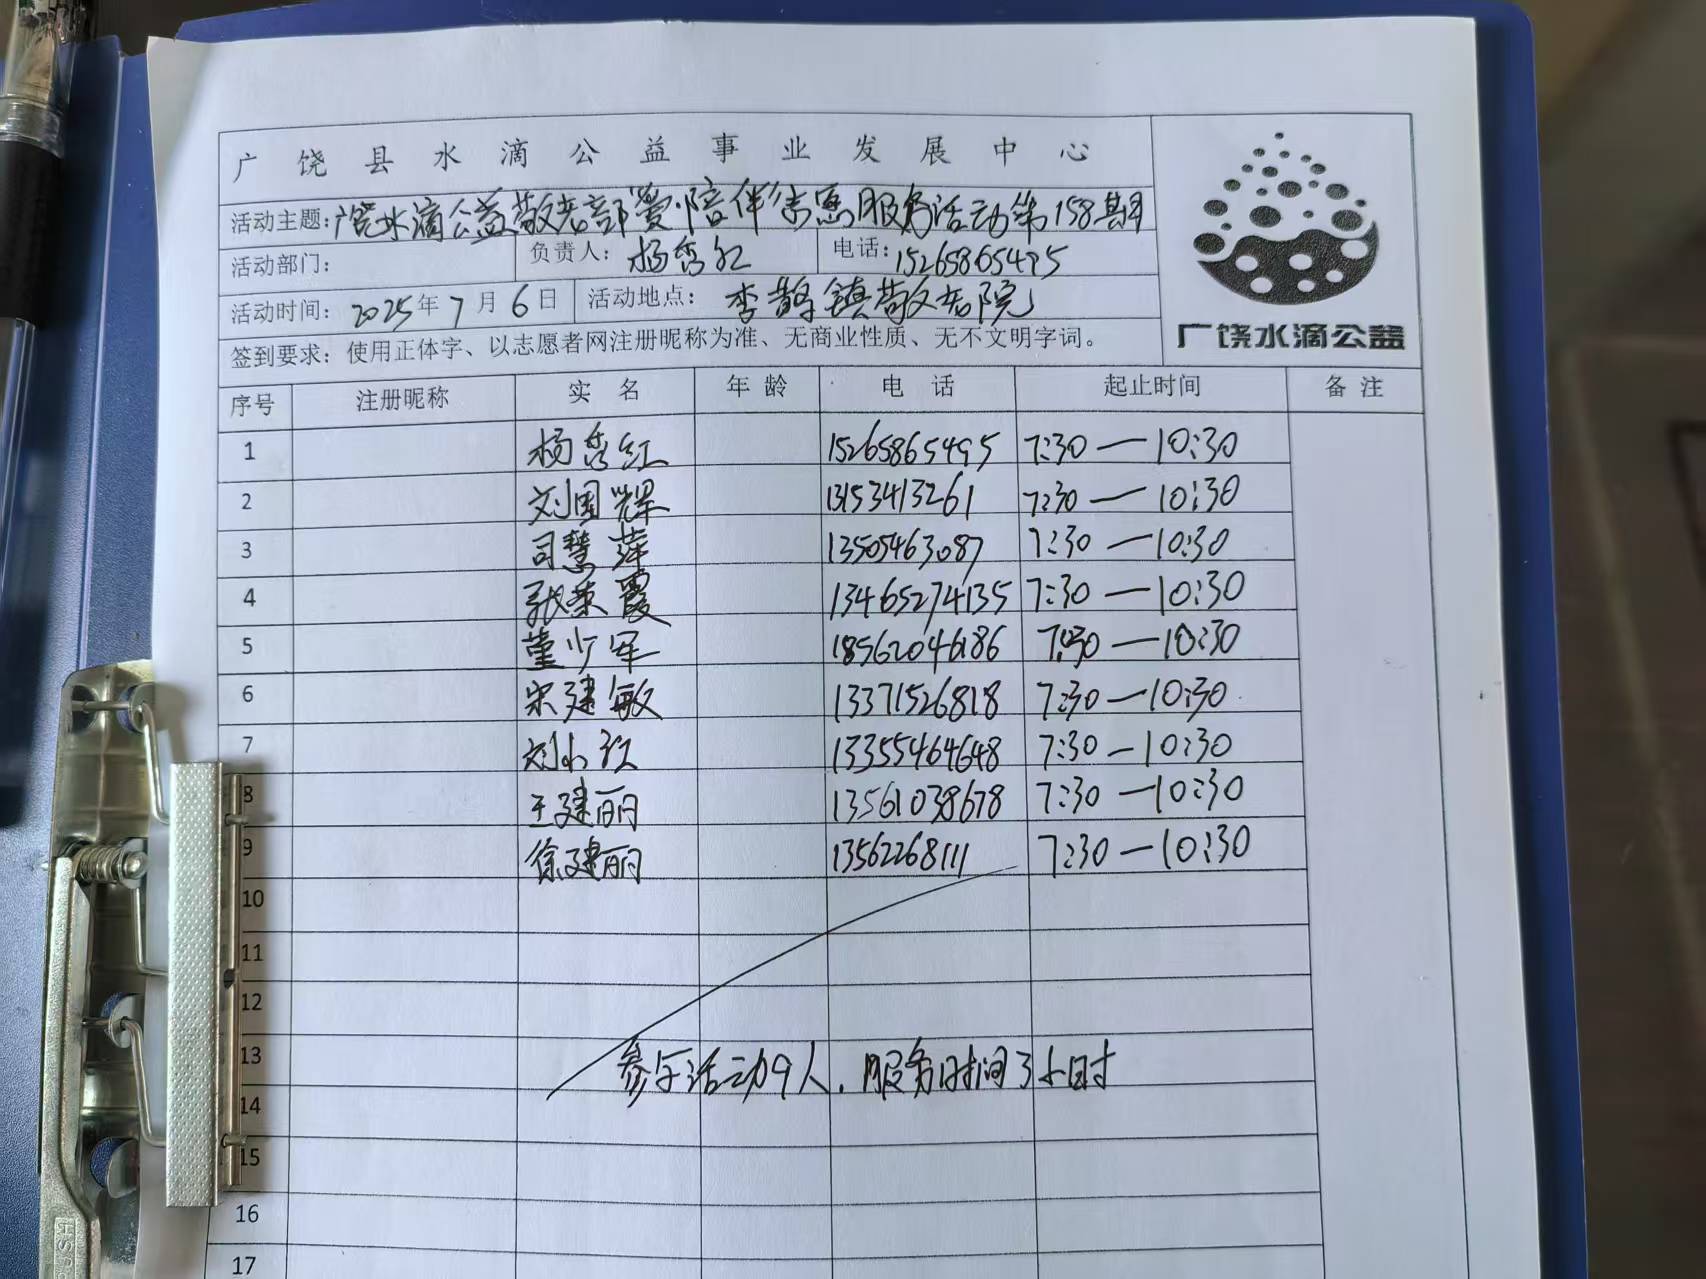 广饶县水滴公益事业发展中心
活动主题:广饶水滴公益敬老部"爱·陪伴"志愿服务活动第158期
活动部门: 负责人: 杨秀红 电话: 15265865495
活动时间: 2025年7月6日 活动地点: 李鹊镇敬老院
签到要求: 使用正体字、以志愿者网注册昵称为准、无商业性质、无不文明字词。
广饶水滴公益
序号 注册昵称 实名 年龄 电话 起止时间 备注
1 杨秀红 15265865495 7:30—10:30
2 刘国辉 13153413261 7:30—10:30
3 司慧萍 13505463087 7:30—10:30
4 张荣霞 13465274135 7:30—10:30
5 董少军 18562046186 7:30—10:30
6 宋建敏 13371526818 7:30—10:30
7 刘小红 13355464648 7:30—10:30
8 王建丽 13561038678 7:30—10:30
9 徐建丽 13562268111 7:30—10:30
10
11
12
13 参与活动9人,服务时间3小时
14
15
16
17